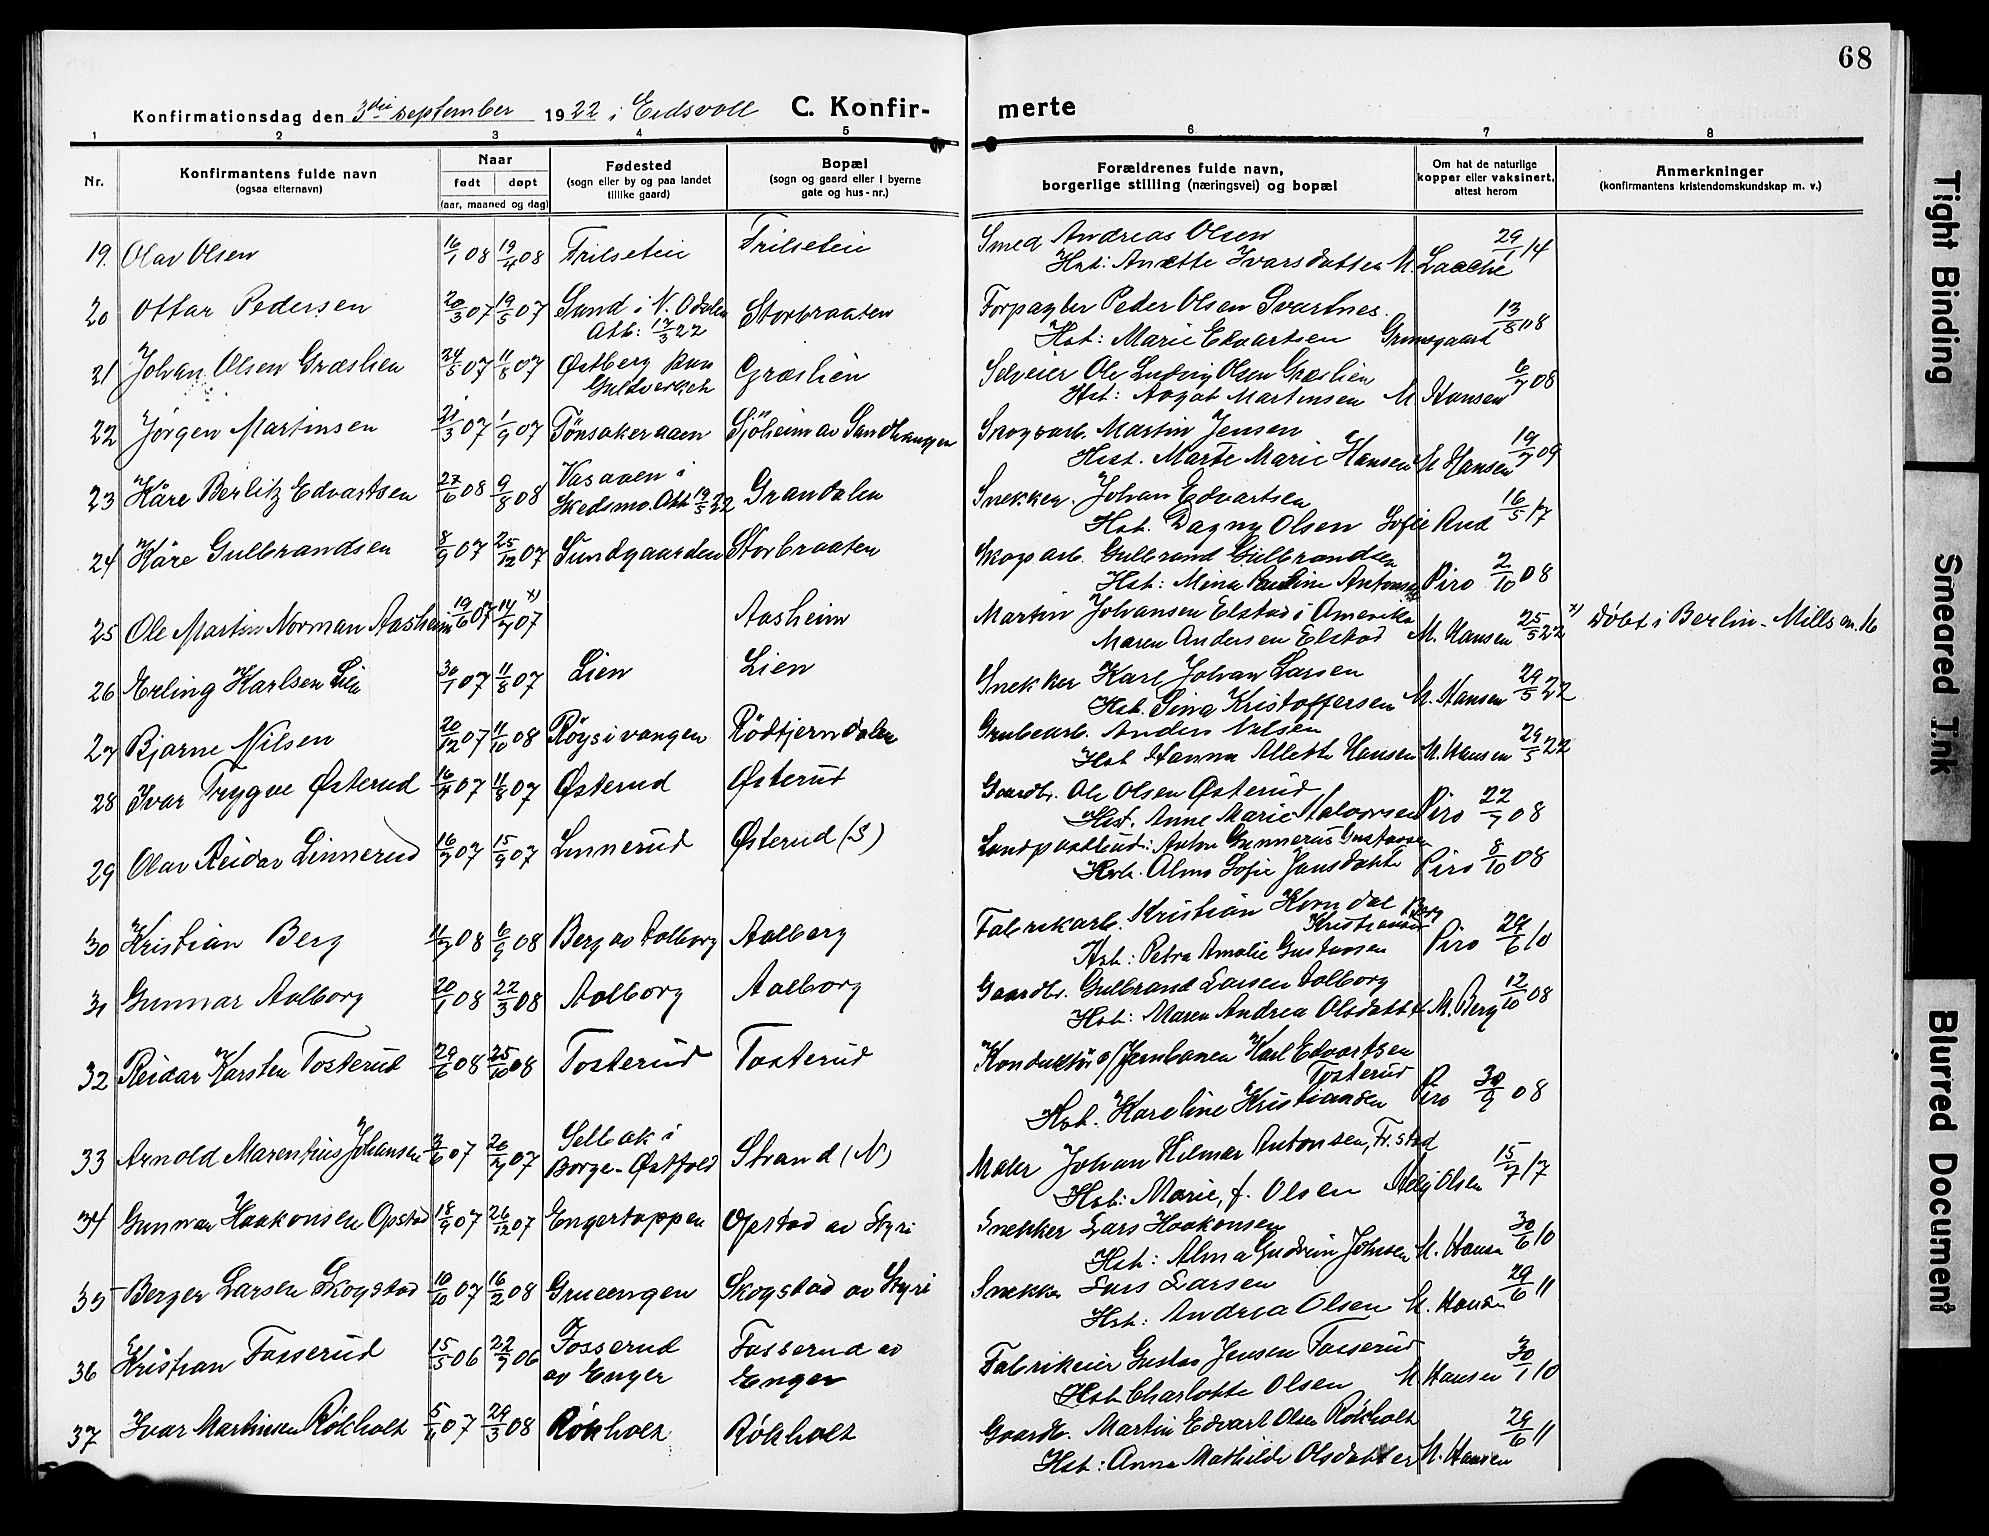 68
Konfirmationsdag den 3die september 1922 i Eidsvoll C. Konfir- merte
1 2 3 4 5 6 7 8
Nr.
Konfirmantens fulde navn
(ogsaa efternavn)
Naar
født døpt
(aar, maaned og dag)
Fødested
(sogn eller by og paa landet
tillike gaard)
Bopæl
(sogn og gaard eller i byerne
gate og hus-nr.)
Forældrenes fulde navn,
borgerlige stilling (næringsvei) og bopæl
Om hat de naturlige
kopper eller vaksinert,
attest herom
Anmerkninger
(konfirmantens kristendomskundskap m. v.)
19. Olav Olsen 16/1 08 19/4 08 Trilseteie Trilseteie Smed Andreas Olsen
Hst: Anette Ivarsdatter M. Laache 29/1 14
20 Ottar Pedersen 20/3 07 19/5 07 Sand i N. Odalen Storbraaten Forpagter Peder Olsen Svartnes.
Att: 17/3 22 Hst: Marie Edvartsen Grimsgaard 13/8 08
21 Johan Olsen Græslien 24/5 07 11/8 07 Østberg Græslien Selveier Ole Ludvig Olsen Græslien
Guldverket Hst: Aagot Martinsen M Hansen 6/7 08
22 Jørgen Martinsen 21/3 07 1/9 07 Tönsakeraaen Sjöheim av Sandhangen Skogsarb. Martin Jensen
Hst. Marte Marie Hansen M Hansen 19/7 09
23 Kåre Berlitz Edvartsen 27/6 08 9/8 08 Vasaaen i Grandalen Snekker. Johan Edvartsen
Skedsmo. Att 19/5 22 Hst. Dagny Olsen Sofie Rud 16/5 17
24 Kåre Gulbrandsen 8/9 07 25/12 07 Sundgaarden Storbraaten Skogsarb. Gulbrand Gulbrandsen
Hst: Mina Pauline Antonsen Piro 2/10 08
25 Ole Martin Norman Aasheim 19/6 07 14/7 07 x) Aasheim Martin Johansen Elstad i Amerika
Maren Andersen Elstad M. Hansen 25/5 22 x) Döbt i Berlin - Mills
26 Erling Karlsen Lie 30/1 07 11/8 07 Lien Lien Snekker Karl Johan Larsen
Hst. Sina Kristoffersen M. Hansen 29/5 22
27 Bjarne Nilsen 20/12 07 11/10 08 Röysivangen Rödtjerndalen Grubearb. Anders Nilsen
Hst Hanna Alette Hansen M. Hansen 29/5 22
28 Ivar Trygve Østerud 16/4 07 11/8 07 Østerud Østerud Gaardbr. Ole Olsen Østerud
Hst. Anne Marie Halvorsen Piro 22/7 08
29 Olav Reidar Linnerud 16/7 07 15/9 07 Linnerud Østerud (S) Landpostbud: Anton Gunnerius Gustavsen
Hst. Alma Sofie Jansdatte Piro 8/10 08
30 Kristian Berg 11/7 08 6/9 08 Berg av Aalborg Aalborg Fabrikarb. Kristian Korndal Berg
Kristiansen
Hst: Petra Amalie Gustavsen Piro 29/6 10
31 Gunnar Aalborg 20/1 08 22/3 08 Aalborg Aalborg Gaardbr. Gulbrand Larsen Aalborg
Hst: Maren Andrea Olsdatter M. Berg 12/10 08
32 Reidar Karsten Tosterud 29/6 08 25/10 08 Tosterud Tosterud Konduktör v/Jernbanen Karl Edvartsen
Tosterud
Hst. Kareline Kristiansen Piro 30/9 08
33 Arnold Marentius Johansen 3/6 07 20/7 07 Selbak i Strand (N) Maler Johan Hilmar Antonsen, Fr.stad
Borge - Østfold Hst: Marie, f. Olsen Olsen 15/7 17
34 Gunnar Haakonsen Opstad 18/9 07 26/12 07 Engertoppen Opstad av Styri Snekker Lars Haakonsen
Hst: Alma Gudrun Johnsen M. Hansen 30/6 10
35 Berger Larsen Skogstad 10/10 07 16/2 08 Grueengen Skogstad av Styri Snekker Lars Larsen
Hst: Andrea Olsen M. Hansen 29/6 11
36 Kristian Fosserud 15/5 06 22/7 06 Fosserud Fosserud av Fabrikeier Gustav Jensen Fosserud
av Enger Enger Hst Charlotte Olsen M Hansen 30/1 10
37 Ivar Martinsen Rökholt 5/11 07 29/3 08 Rökholt Rökholt Gaardb. Martin Edvart Olsen Rökholt
Hst: Anna Mathilde Olsdatter M. Hansen 29/6 11
Tight Binding
Smeared Ink
Blurred Document